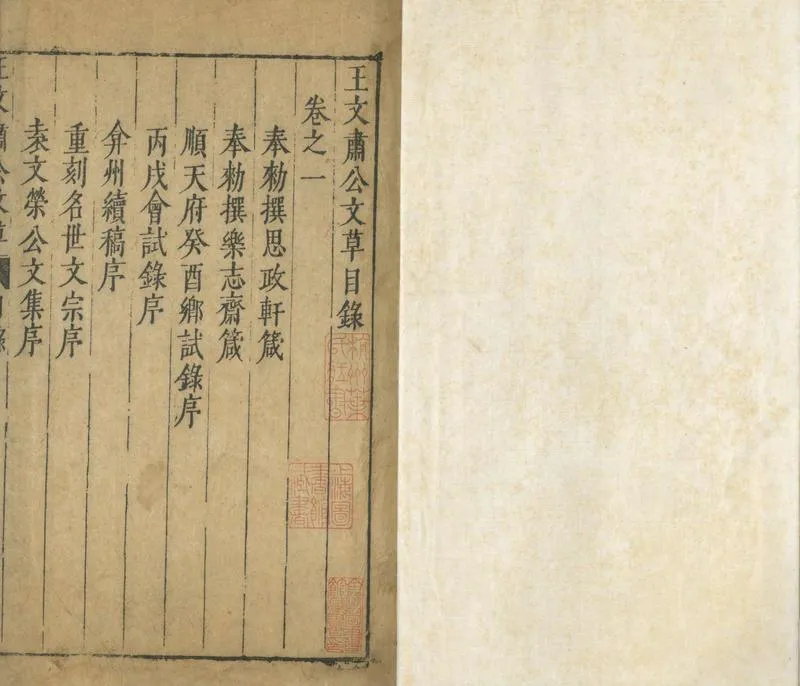 王文肅公文草目錄
卷之一
奉勑撰思政軒箴
奉勑撰樂志齋箴
順天府癸酉鄉試錄序
丙戌會試錄序
弇州續稿序
重刻名世文宗序
袁文榮公文集序